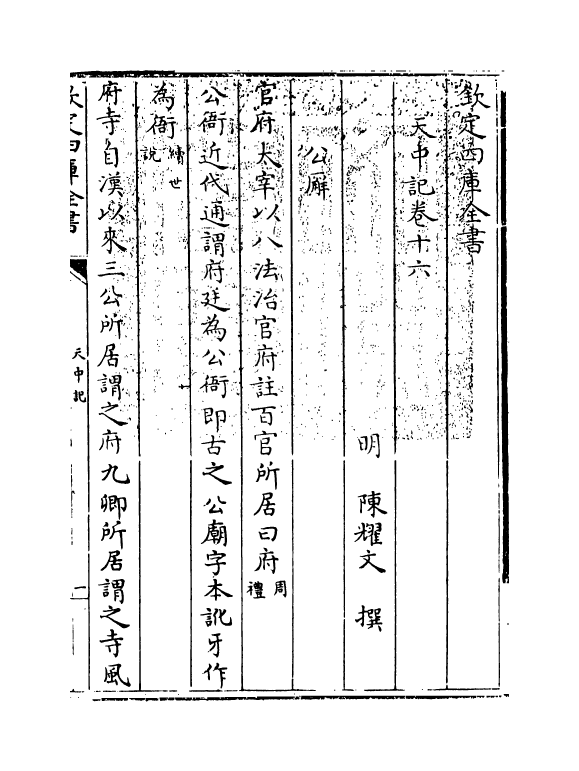 欽定四庫全書
天中記卷十六
明 陳耀文 撰
公廨
官府太宰以八法治官府註百官所居曰府周禮
公衙近代通謂府廷為公衙即古之公廟字本訛牙作
為衙續世說
府寺自漢以來三公所居謂之府九卿所居謂之寺風
欽定四庫全書
天中記
一